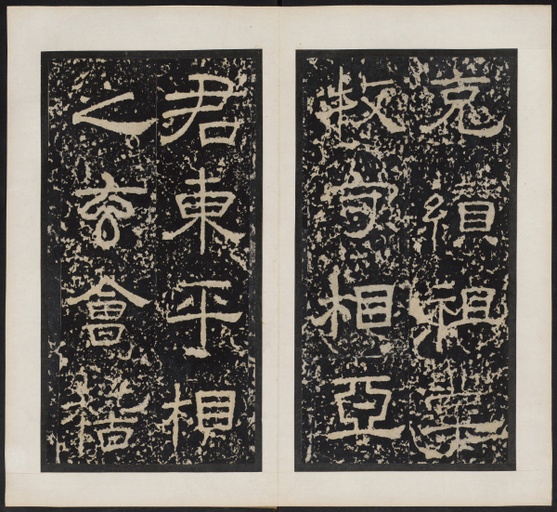 克纘祖業
牧守相亞
君東平相
之玄會稽